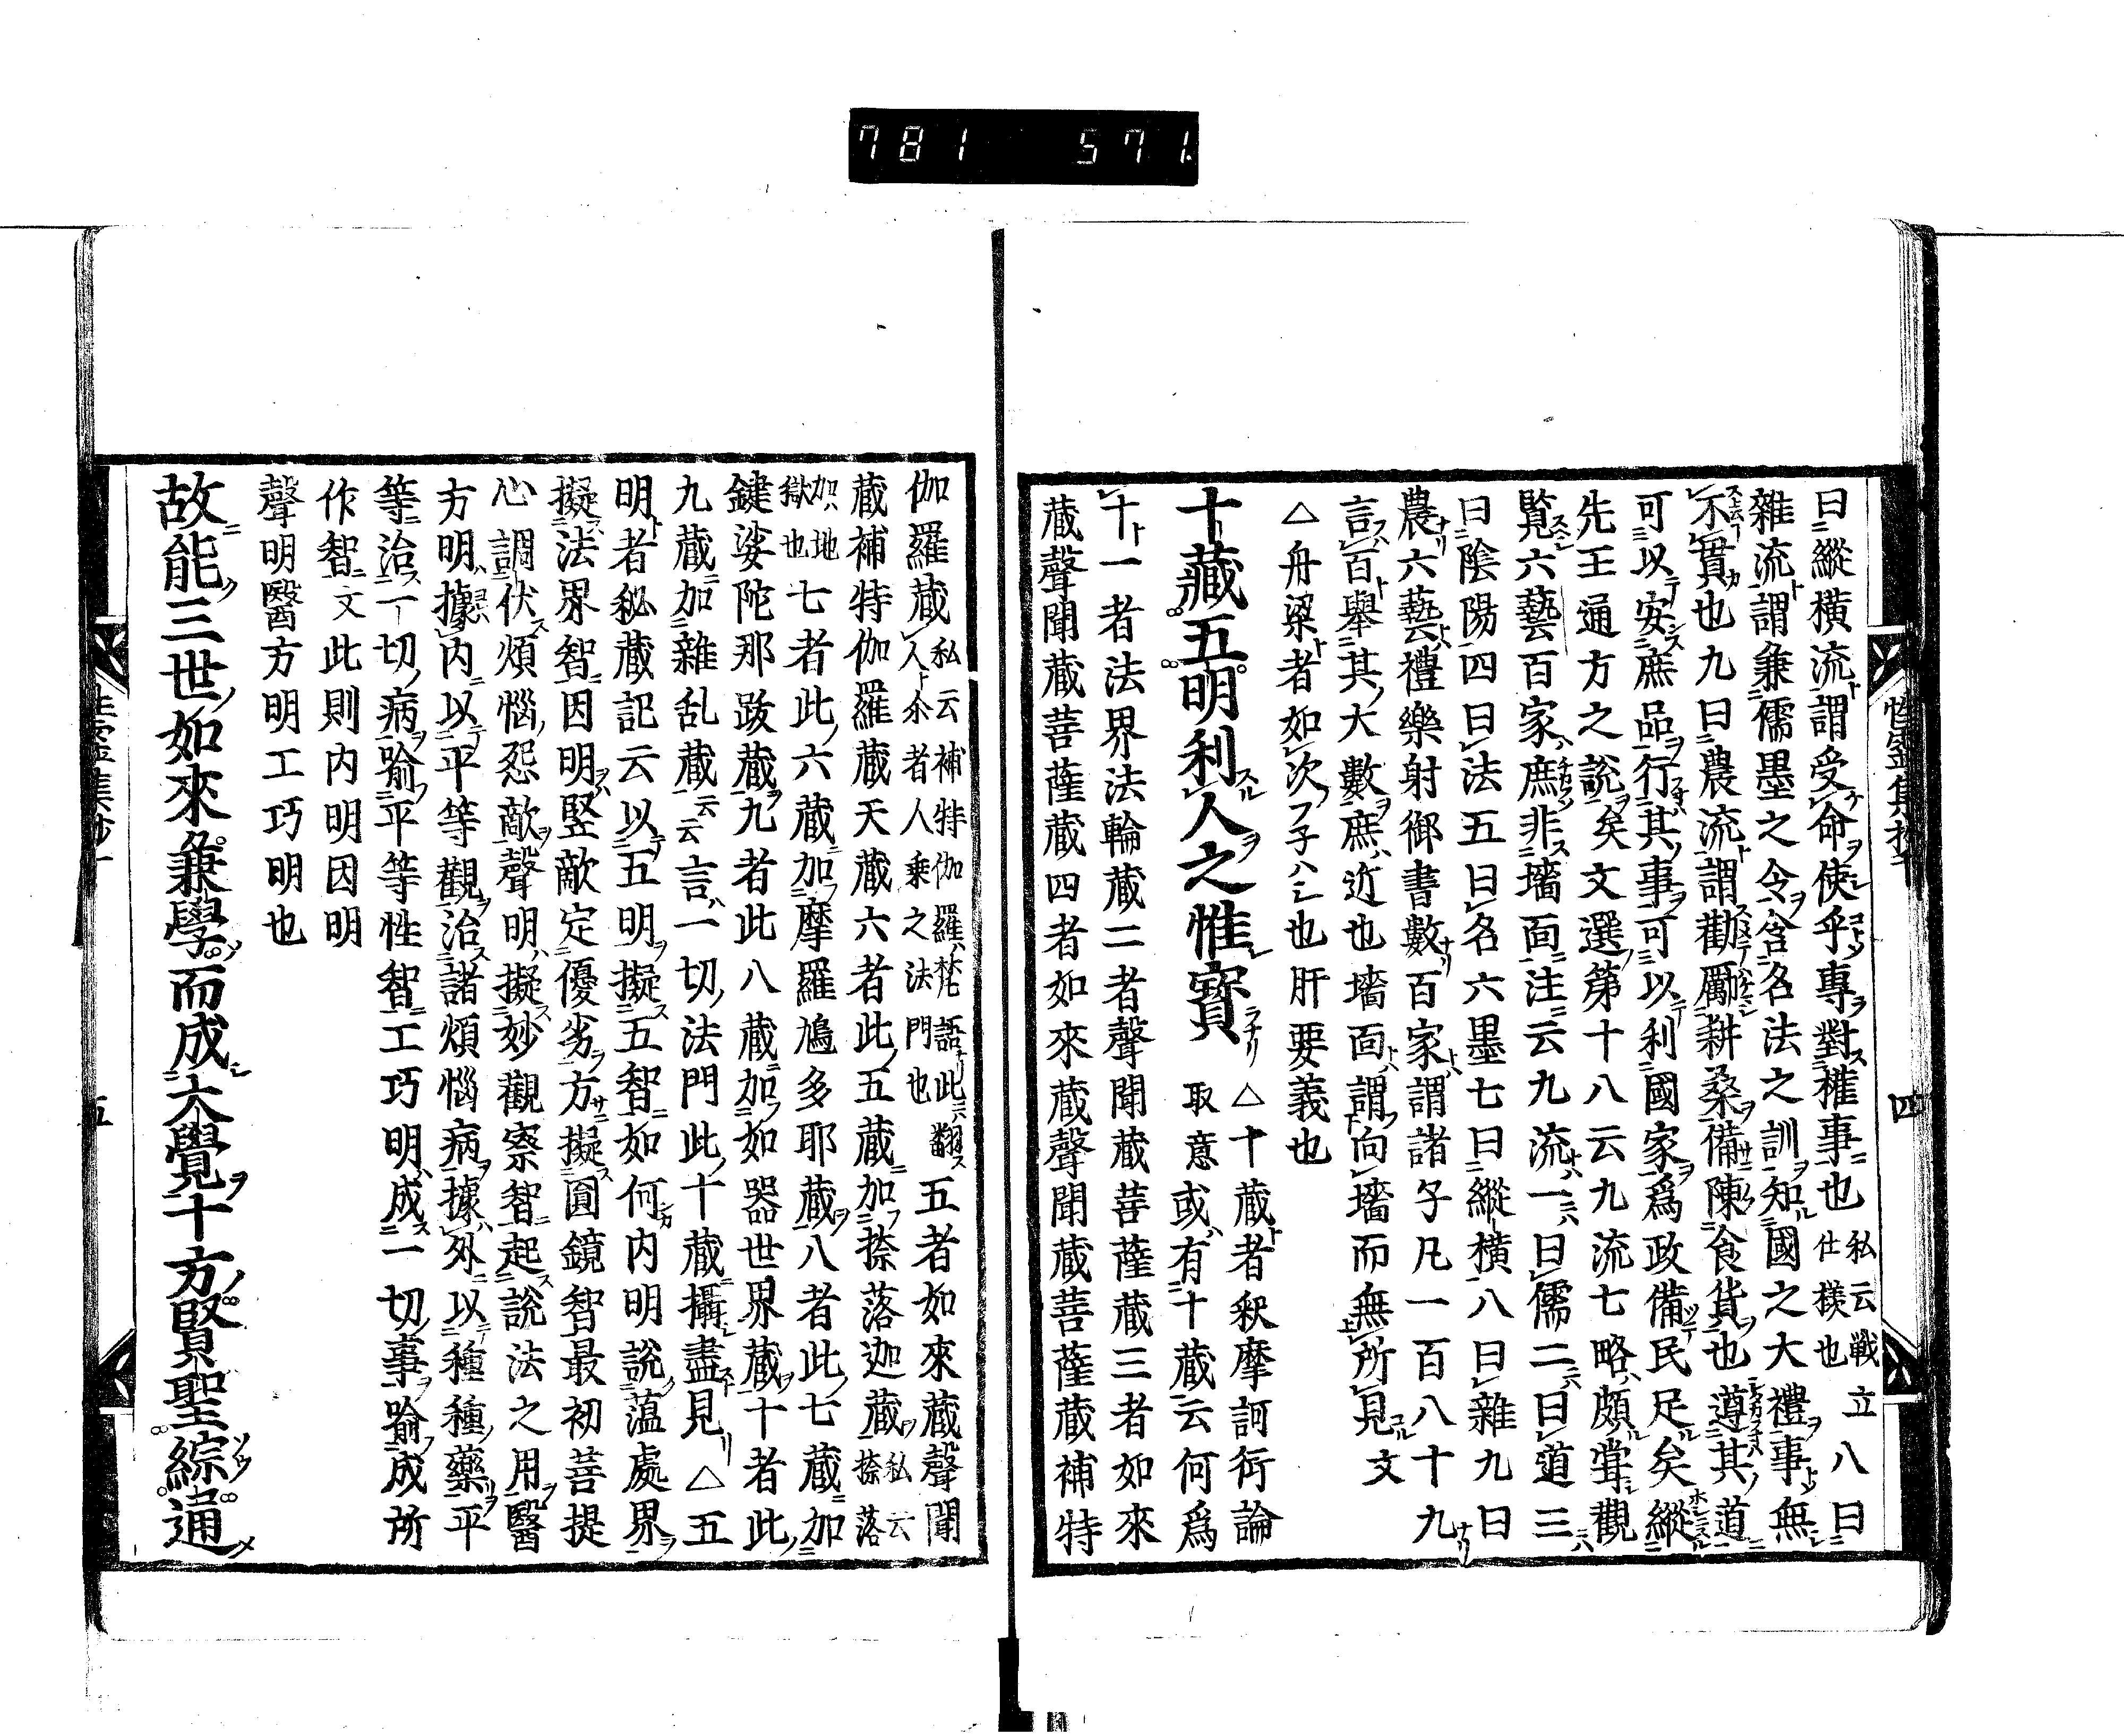 781 571
曰縱橫流謂受命使乎專對權事也私云戰仕樣也立八曰
雜流謂兼儒墨之令含名法之訓知國之大禮事無
不貫也九曰農流謂勸勵耕桑備陳食貨也遵其道
可以安庶品行其事可以利國家爲政備民足矣縱
先王通方之說矣文選第十八云九流七略頗嘗觀
覽六藝百家庶非墻面注云九流一曰儒二曰道三
曰陰陽四曰法五曰名六墨七曰縱橫八曰雜九曰
農六藝禮樂射御書數百家謂諸子凡一百八十九
言百舉其大數庶近也墻面謂向墻而無所見文
△舟梁者如次フ子ハシ也肝要義也
十藏五明利人之惟寳△十藏者釈摩訶衍論
取意或有十藏云何爲
十一者法界法輪藏二者聲聞藏菩薩藏三者如來
藏聲聞藏菩薩藏四者如來藏聲聞藏菩薩藏補特
四
伽羅藏私云補特伽羅梵語此翻
人尒者人乘之法門也五者如來藏聲聞
藏補特伽羅藏天藏六者此五藏加捺落迦藏私云捺落
加地獄也七者此六藏加摩羅鳩多耶藏八者此七藏加
鍵娑陀那跋藏九者此八藏加如器世界藏十者此
九藏加雜乱藏云云言一切法門此十藏攝盡見△五
明者秘藏記云以五明擬五智如何内明說薀處界
擬法界智因明竪敵定優劣方擬圓鏡智最初菩提
心調伏煩惱怨敵聲明擬妙觀察智起說法之用醫
方明據内以平等觀治諸煩惱病據外以種種藥平
等治一切病喻平等性智工巧明成一切事喻成所
作智文此則内明因明
聲明醫方明工巧明也
故能三世如來兼學而成大覺十方賢聖綜通
五